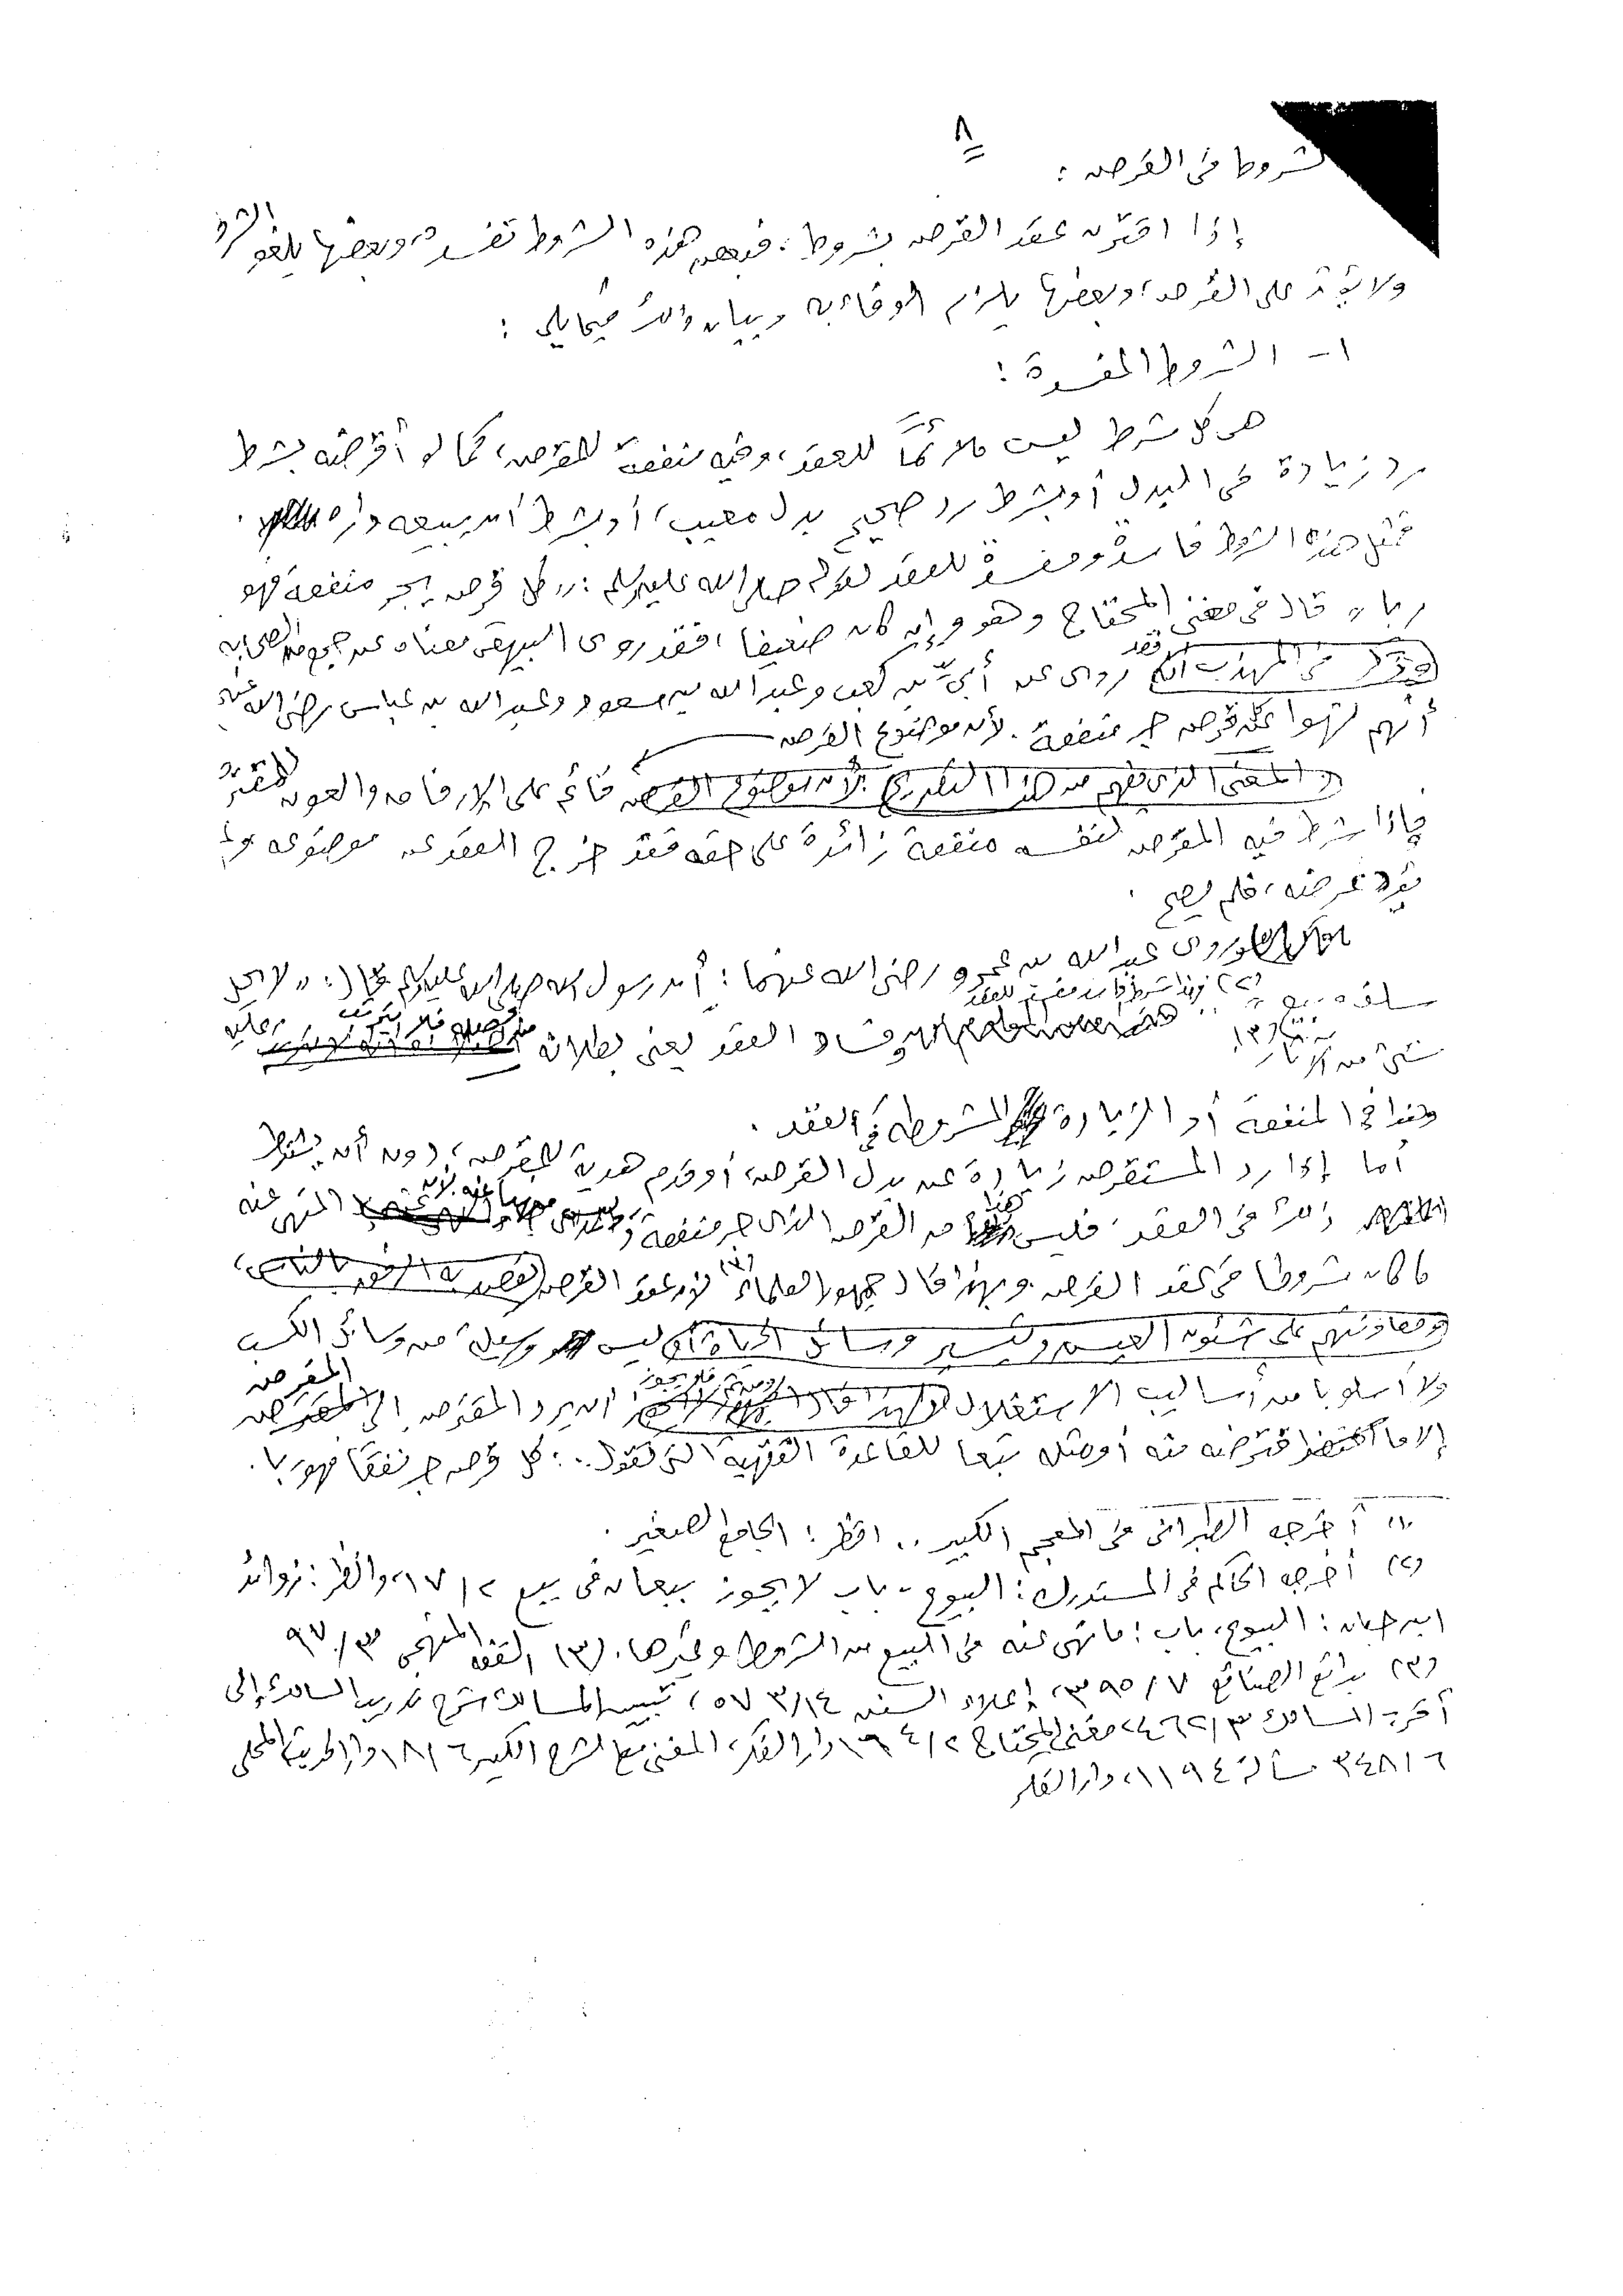 ٨
الشروط في القرض :
إذا اقترن عقد القرض بشروط ، فبعض هذه الشروط تفسده ، وبعضها يلغو الشرط
ولا يؤثر على القرض ، وبعضها يلزم الوفاء به وبيان ذلك فيما يلي :
١ - الشروط المفسدة :
هي كل شرط ليس ملائمًا للعقد ، وفيه منفعة للمقرض ، كما لو أقرضه بشرط
رد زيادة في البدل أو بشرط رد صحيح بدل معيب ، أو بشرط أن يبيعه داره .
فمثل هذه الشروط فاسدة ومفسدة للعقد لقوله صلى الله عليه وسلم : « كل قرض يجر منفعة فهو
ربا » قال في مغني المحتاج وهو وإن كان ضعيفا ، فقد روى البيهقي معناه عن جمع من الصحابة
فقد
وذكر في المهذب أنه روى عن أبيّ بن كعب وعبد الله بن مسعود وعبد الله بن عباس رضي الله عنهم
أنهم نهوا عن قرض جر منفعة . لأن موضوع القرض
والمعنى الذي يفهم من هذا التحريم لأن موضوع القرض قائم على الإرفاق والعون للمقترض
فإذا شرط فيه المقرض لنفسه منفعة زائدة على حقه فقد خرج العقد عن موضوعه ولم
يؤد غرضه ، فلم يصح .
وروى عبد الله بن عمرو رضي الله عنهما : أن رسول الله صلى الله عليه وسلم قال : « لا يحل
سلف وبيع » (٢) فهذا شرط فاسد مفسد للعقد
وفساد العقد يعني بطلانه فلا يترتب عليه
شيء من الآثار (٣)
وهذا في المنفعة أو الزيادة المشروطة في العقد .
أما إذا رد المستقرض زيادة عن بدل القرض ، أو قدم هدية للمقرض ، دون أن يشترط
ذلك في العقد ، فليس هذا من القرض الذي جر منفعة وليس منهيا عنه لأن المنهي عنه
ما كان مشروطا في عقد القرض . وبهذا قال جمهور العلماء (٣) لأن عقد القرض قصد به الرفق بالناس ،
ومعاونتهم على شئون العيش وتيسير وسائل الحياة وليس وسيلة من وسائل الكسب
ولا أسلوبا من أساليب الاستغلال ومن ثم فلا يجوز أن يرد المقترض إلى المقرض
إلا ما اقترضه منه أو مثله تبعا للقاعدة الفقهية التي تقول : كل قرض جر نفعا فهو ربا .
(١) أخرجه الطبراني في المعجم الكبير .. انظر : الجامع الصغير .
(٢) أخرجه الحاكم في المستدرك : البيوع - باب لا يجوز بيعان في بيع ٢ / ١٧ ، وانظر : زوائد
ابن حبان : البيوع ، باب : ما نهى عنه في البيع من الشروط وغيرها . (٣) الفقه المنهجي ٣ / ٩٧
(٣) بدائع الصنائع ٧ / ٣٩٥ ، إعلاء السنن ١٤ / ٥٧٣ ، تبيين المسالك شرح تدريب السالك إلى
أقرب المسالك ٣ / ٤٦٢ ، مغني المحتاج ٢ / ٣٤ دار الفكر ، المغني مع الشرح الكبير ٦ / ١٨ دار الحديث ، المحلى
٦ / ٣٤٨ مسألة ١١٩٤ ، دار الفكر